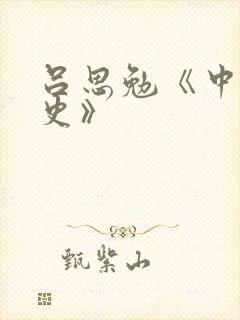 吕思勉《中
史》
甄紫山